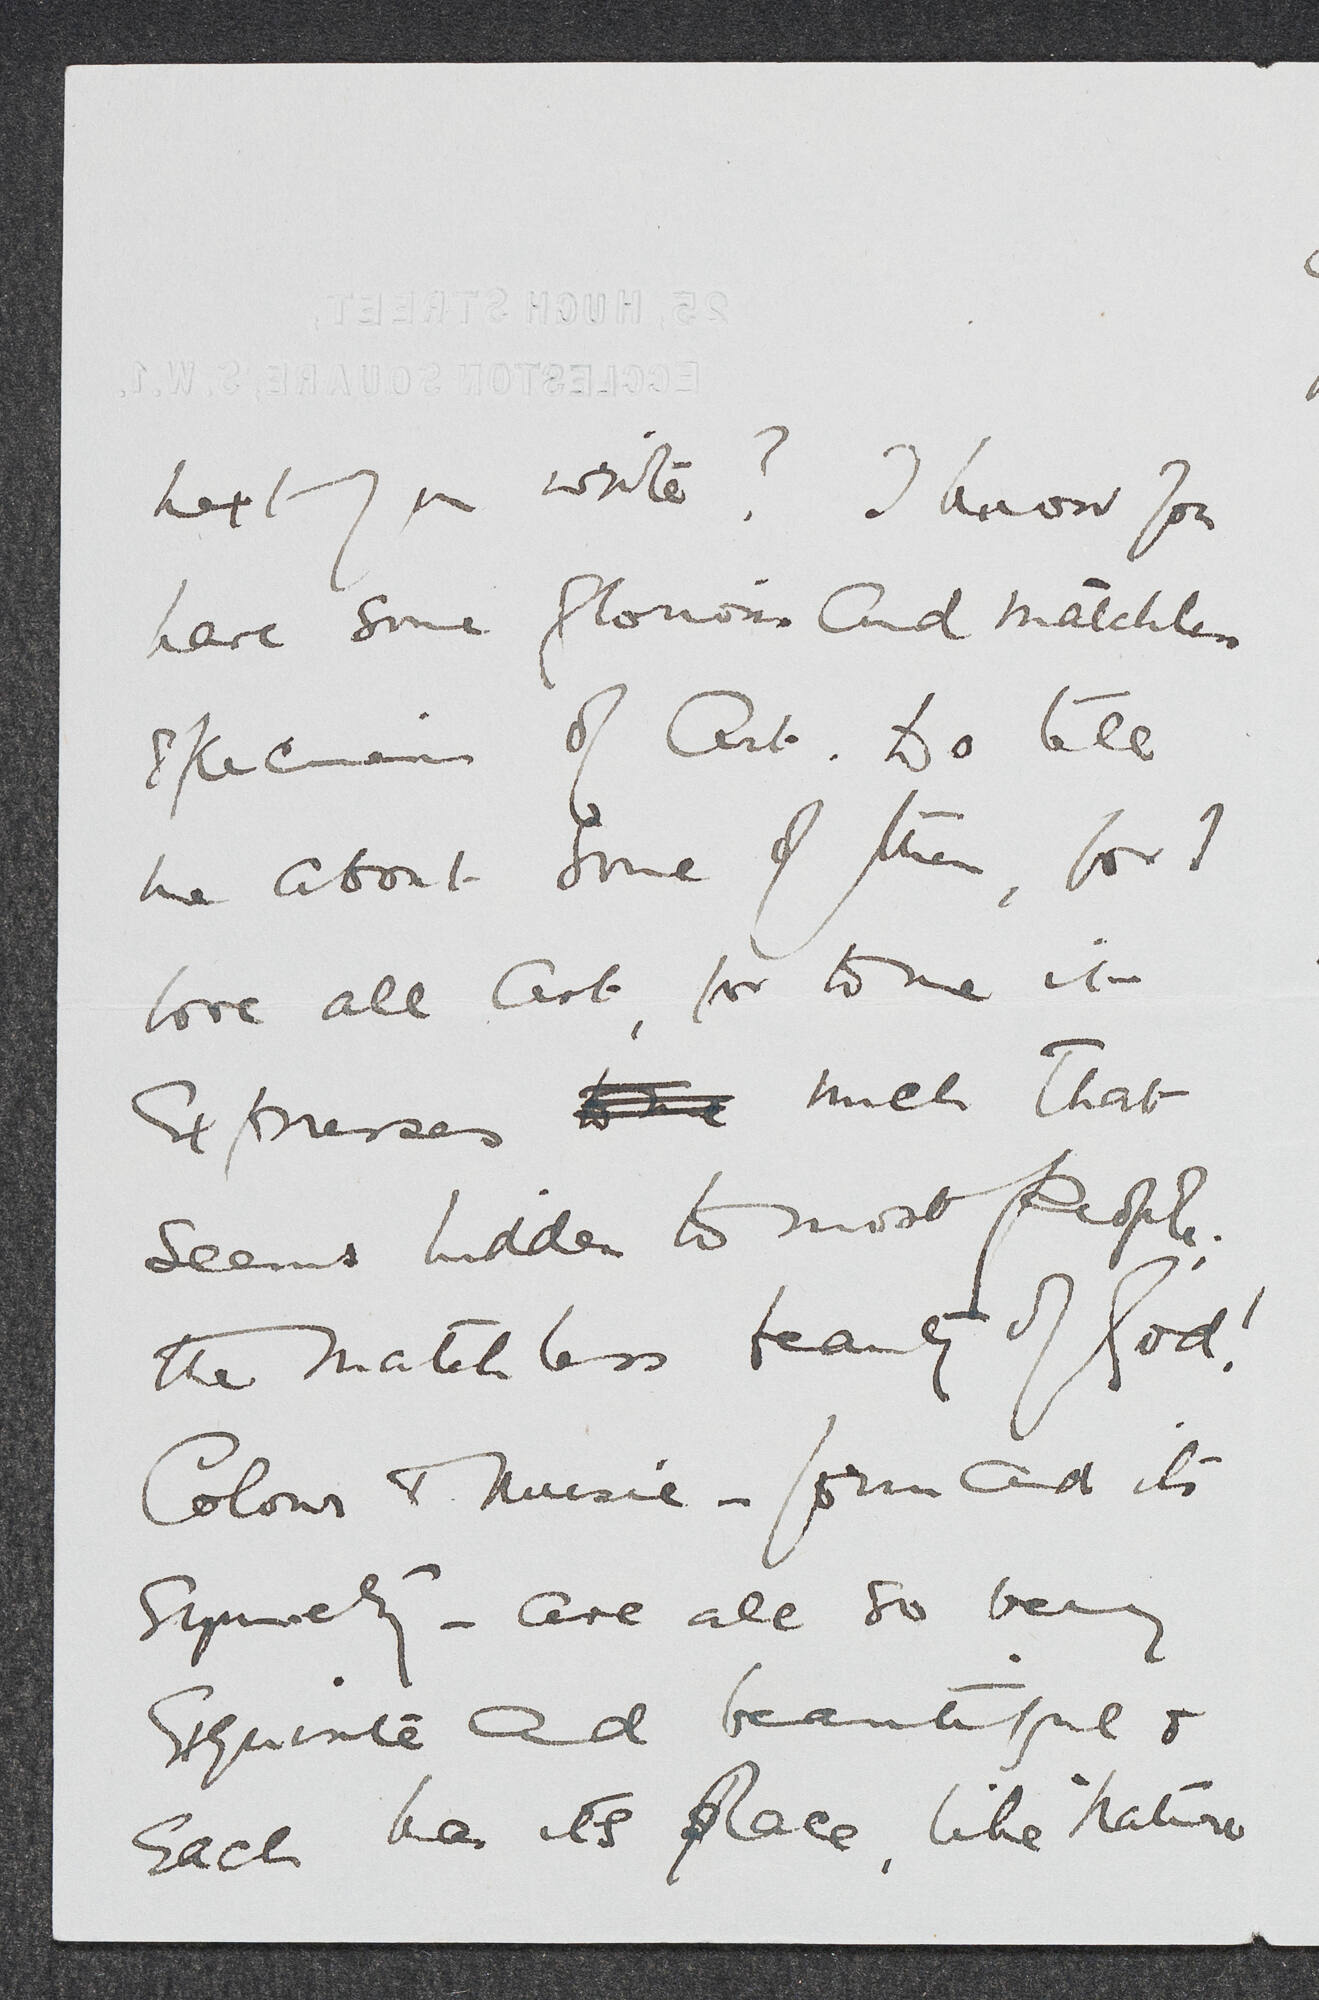 25, HUGH STREET,
ECCLESTON SQUARE, S.W.1.
next you write? I know you
have some glorious and matchless
specimens of Art. Do tell
me about some of them, for I
love all Art, for to me it
Expresses to me much that
seems hidden to most people;
the matchless beauty of God!
Colour & Music - form and its
Symetry - are all so very
Exquisite and beautiful &
Each has its place, like Nature